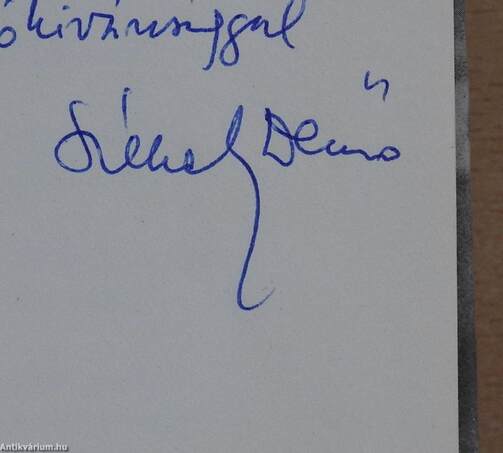 jókívánsággal
Székely Dezső
Antikvárium.hu